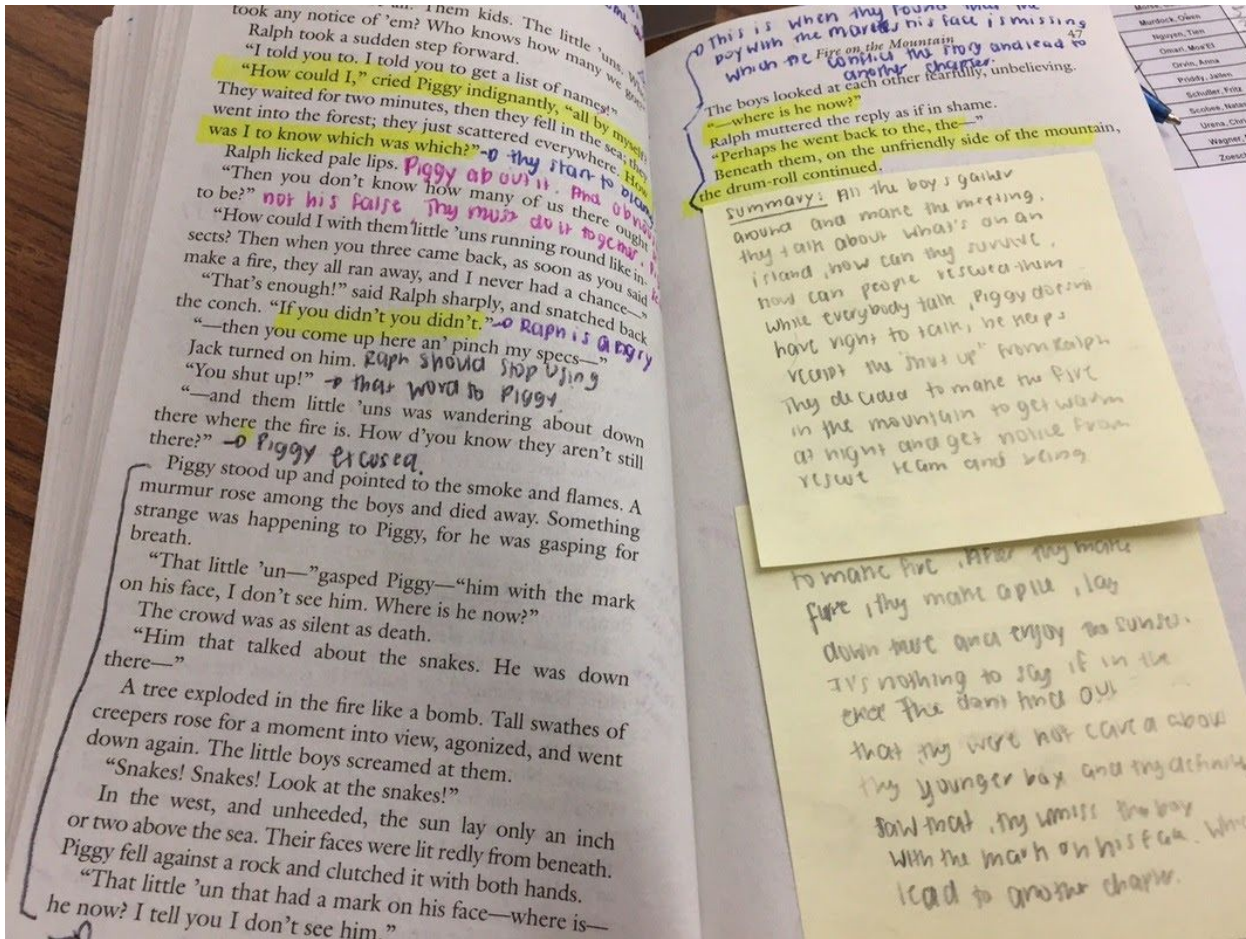 Them kids. The little 'uns. Who
took any notice of 'em? Who knows how many we got?"
Ralph took a sudden step forward.
"I told you to. I told you to get a list of names!"
"How could I," cried Piggy indignantly, "all by myself?
They waited for two minutes, then they fell in the sea; they
went into the forest; they just scattered everywhere. How
was I to know which was which?" thy start to blame
Ralph licked pale lips. Piggy about it. And
"Then you don't know how many of us there ought
to be?" not his false Thy must do it together.
"How could I with them little 'uns running round like in-
sects? Then when you three came back, as soon as you said
make a fire, they all ran away, and I never had a chance—"
"That's enough!" said Ralph sharply, and snatched back
the conch. "If you didn't you didn't." Raph is angry
"—then you come up here an' pinch my specs—"
Jack turned on him. Raph should stop using
"You shut up!" that word to Piggy.
"—and them little 'uns was wandering about down
there where the fire is. How d'you know they aren't still
there?" Piggy excused.
Piggy stood up and pointed to the smoke and flames. A
murmur rose among the boys and died away. Something
strange was happening to Piggy, for he was gasping for
breath.
"That little 'un—"gasped Piggy—"him with the mark
on his face, I don't see him. Where is he now?"
The crowd was as silent as death.
"Him that talked about the snakes. He was down
there—"
A tree exploded in the fire like a bomb. Tall swathes of
creepers rose for a moment into view, agonized, and went
down again. The little boys screamed at them.
"Snakes! Snakes! Look at the snakes!"
In the west, and unheeded, the sun lay only an inch
or two above the sea. Their faces were lit redly from beneath.
Piggy fell against a rock and clutched it with both hands.
"That little 'un that had a mark on his face—where is—
he now? I tell you I don't see him."
This is when thy found that the
boy with the marks his face is missing
Fire on the Mountain 47
which the conflict the story and lead to
another chapter.
The boys looked at each other fearfully, unbelieving.
"—where is he now?"
Ralph muttered the reply as if in shame.
"Perhaps he went back to the, the—"
Beneath them, on the unfriendly side of the mountain,
the drum-roll continued.
summary: All the boys gather
around and make the meeting.
thy talk about what's on an
island, how can thy survive,
how can people rescued them
while everybody talk, Piggy doesn't
have right to talk, he keeps
receipt the "shut up" from Ralph
Thy decided to make the fire
in the mountain to get warm
at night and get notice from
rescue team and being
to make fire. After thy make
fire, thy make a pile, lay
down there and enjoy the sunset.
It's nothing to say if in the
the don't find out
that thy were not care about
thy younger boy and thy definite
saw that, thy miss the boy
with the mark on his face.
lead to another chapter.
Murdock, Owen
Nguyen, Tien
Orvin, Anna
Priddy, Jalen
Schuller, Fritz